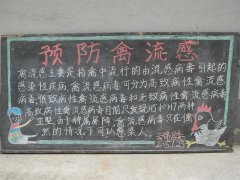 预防禽流感
禽流感主要是指禽中流行的由流感病毒引起的
感染性疾病,禽流感病毒可分为高致病性禽流感
病毒,低致病性禽流感和无致病性禽流感病毒
高致病性禽流感病毒目前只发现H5和H7两种
亚型由于种属屏障,禽流感病毒只在偶
然的情况下可以感染人。